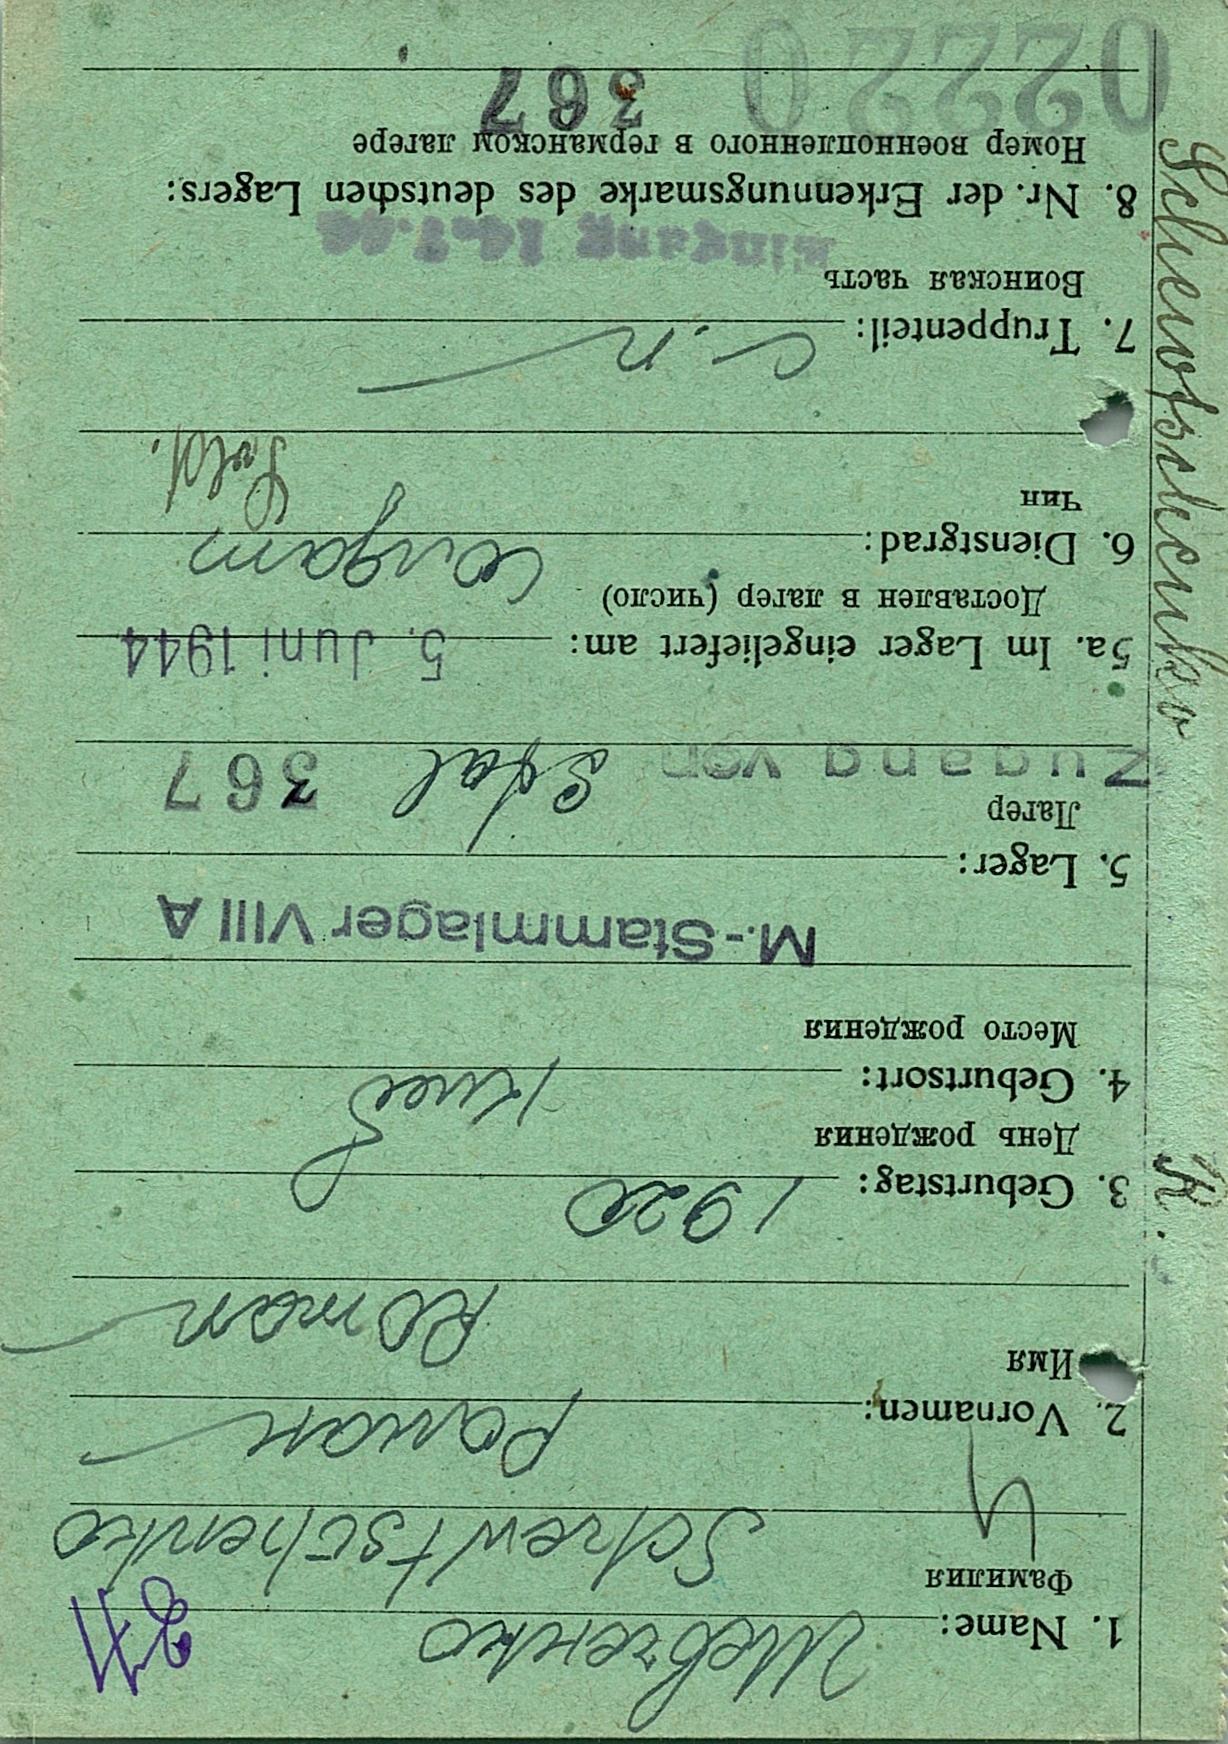 1. Name: Шевченко
Фамилия
Schewtschenko
2. Vornamen: Роман
Имя
Roman
3. Geburtstag: 1920
День рождения
4. Geburtsort: Киев
Место рождения
M.-Stammlager VIII A
5. Lager:
Лагерь
Zugang von Stal 367
5a. Im Lager eingeliefert am: 5. Juni 1944
Доставлен в лагер (число)
6. Dienstgrad: солдат
Чин
Sold.
7. Truppenteil: с.п
Воинская часть
Eingang
8. Nr. der Erkennungsmarke des deutschen Lagers:
Номер военнопленного в германском лагере
367 02220
Schewtschenko R.